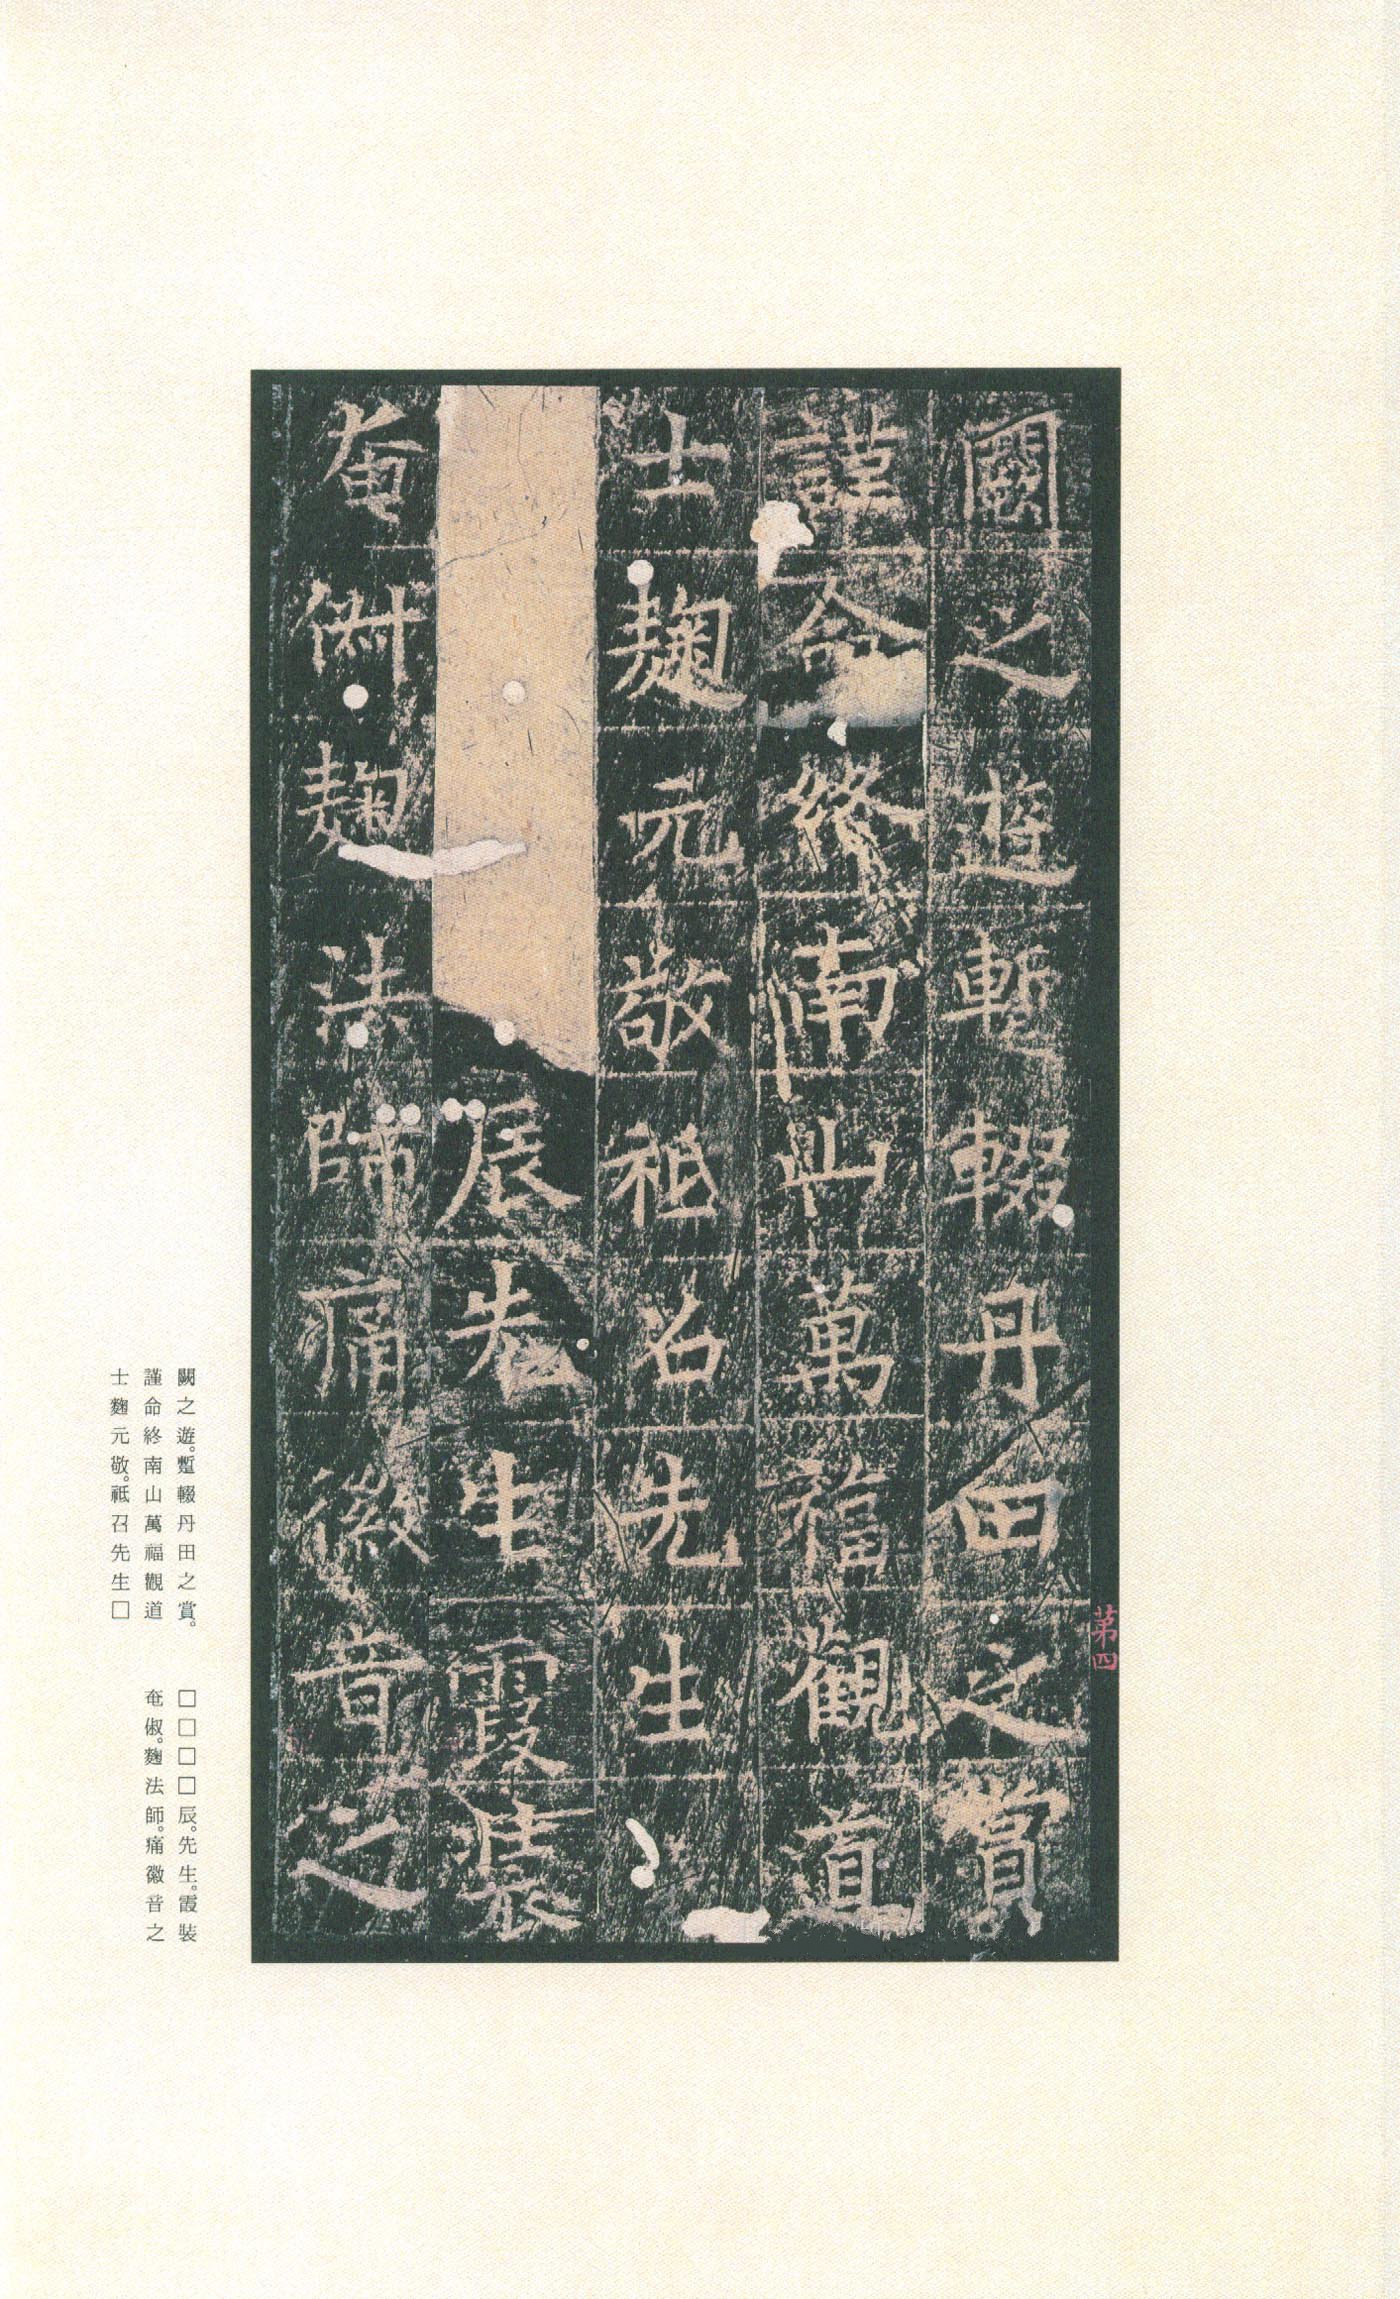 闕之遊蹔輟丹田之賞
謹命終南山萬福觀道
士麴元敬祗召先生
辰先生霞裝
奄俶麴法師痛徽音之
第四
闕之遊。蹔輟丹田之賞。
謹命終南山萬福觀道
士麴元敬。祗召先生□
□□□□辰。先生。霞裝
奄俶。麴法師。痛徽音之